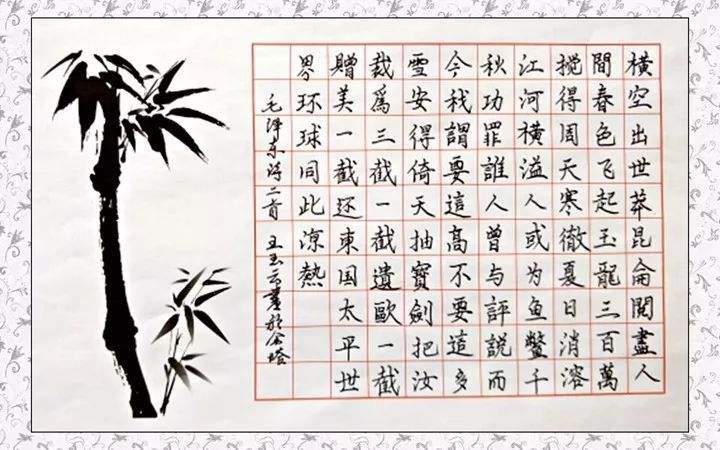 横空出世莽昆侖閱盡人
間春色飞起玉龍三百萬
搅得周天寒徹夏日消溶
江河横溢人或为鱼鳖千
秋功罪誰人曾与評説而
今我謂要這高不要這多
雪安得倚天抽寶劍把汝
裁爲三截一截遺歐一截
贈美一截还東国太平世
界环球同此凉熱
毛泽东诗二首 王玉云書於金塔